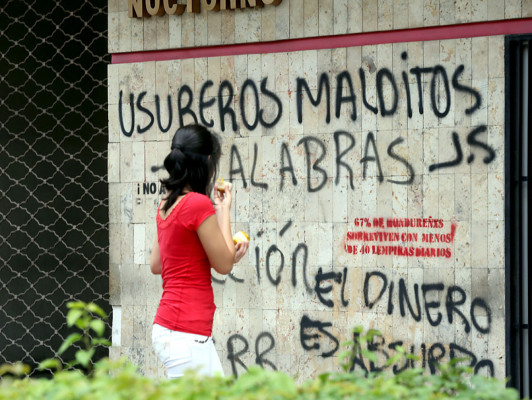 NOCTURNO
USUREROS MALDITOS
PALABRAS J.S
¡NO A
67% DE HONDUREÑXS
SOBREVIVEN CON MENOS
DE 40 LEMPIRAS DIARIOS
CIÓN EL DINERO
RR ES ABSURDO